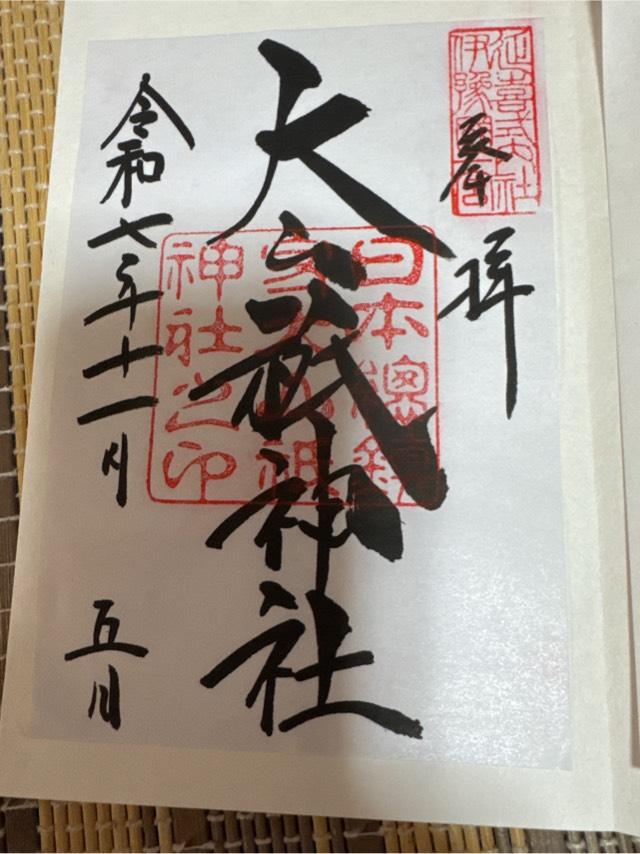 延喜式内社
伊豫國一宮
奉拝
日本總鎮
守大山祇
神社之印
大山祇神社
令和七年十一月 五日